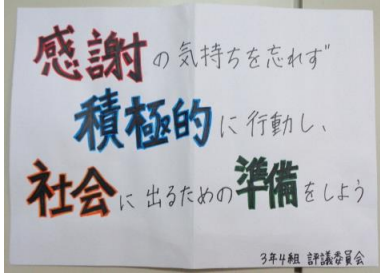 感謝の気持ちを忘れず
積極的に行動し、
社会に出るための準備をしよう
3年4組 評議委員会